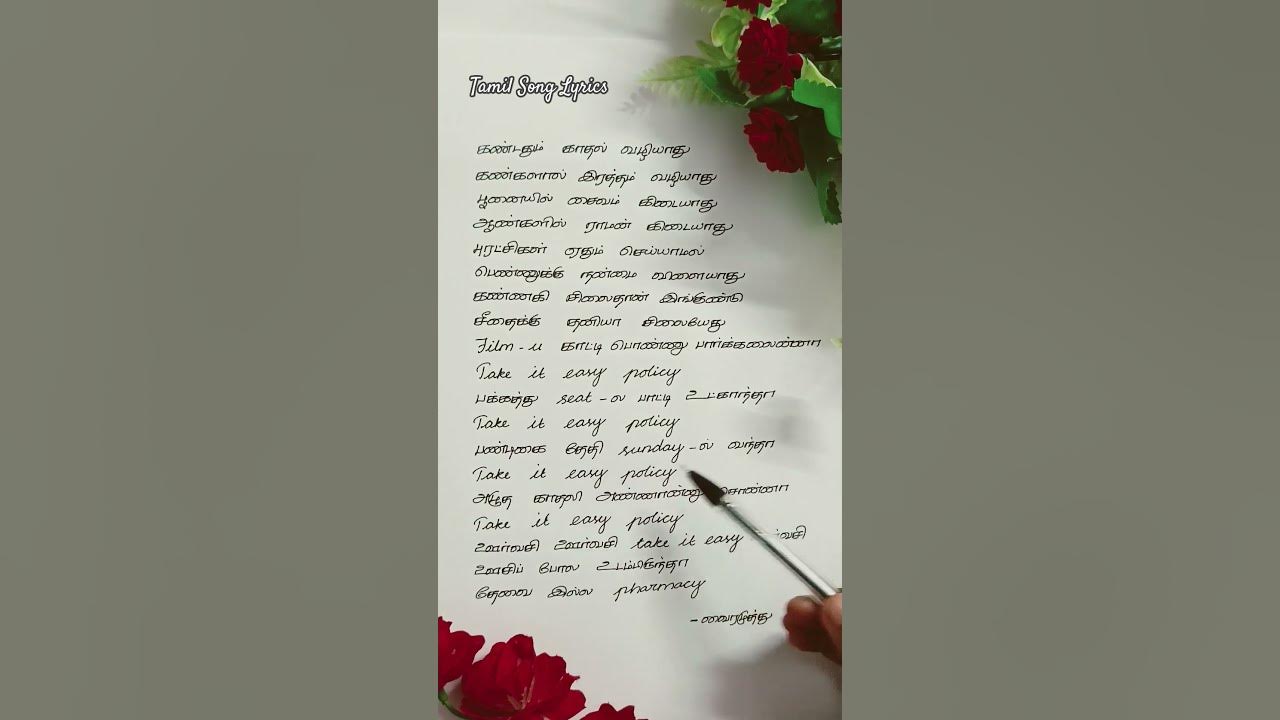 Tamil Song Lyrics
கண்டதும் காதல் வழியாது
கண்களால் இரத்தம் வழியாது
பூனையில் சைவம் கிடையாது
ஆண்களில் ராமன் கிடையாது
புரட்சிகள் ஏதும் செய்யாமல்
பெண்ணுக்கு நன்மை விளையாது
கண்ணகி சிலைதான் இங்குண்டு
சீதைக்கு தனியா சிலையேது
Film - u காட்டி பொண்ணு பார்க்கலைன்னா
Take it easy policy
பக்கத்து seat - ல பாட்டி உட்காந்தா
Take it easy policy
பண்டிகை தேதி sunday - ல் வந்தா
Take it easy policy
அழுத காதலி அண்ணான்னு சொன்னா
Take it easy policy
ஊர்வசி ஊர்வசி take it easy
ஊசிப் போல உடம்பிருந்தா
தேவை இல்ல pharmacy
- வைரமுத்து